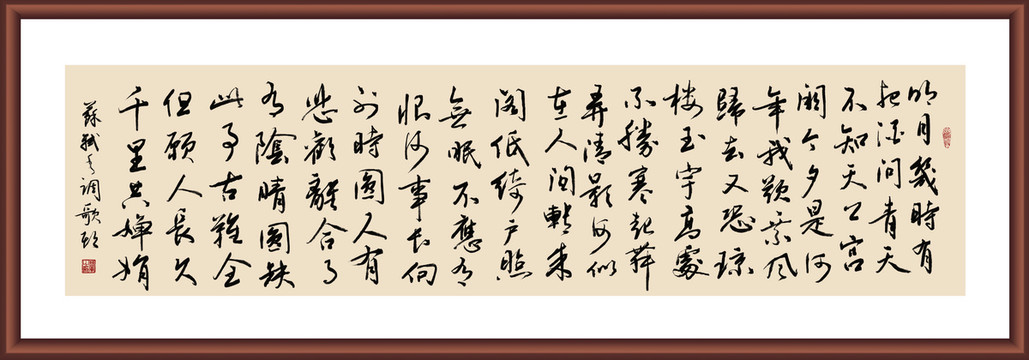 明月幾時有
把酒問青天
不知天上宮
闕今夕是何
年我欲乘风
歸去又恐琼
楼玉宇高處
不勝寒起舞
弄清影何似
在人间轉朱
阁低绮户照
無眠不應有
恨何事长向
别時圓人有
悲歡離合月
有陰晴圓缺
此事古難全
但願人長久
千里共嬋娟
蘇軾水调歌头